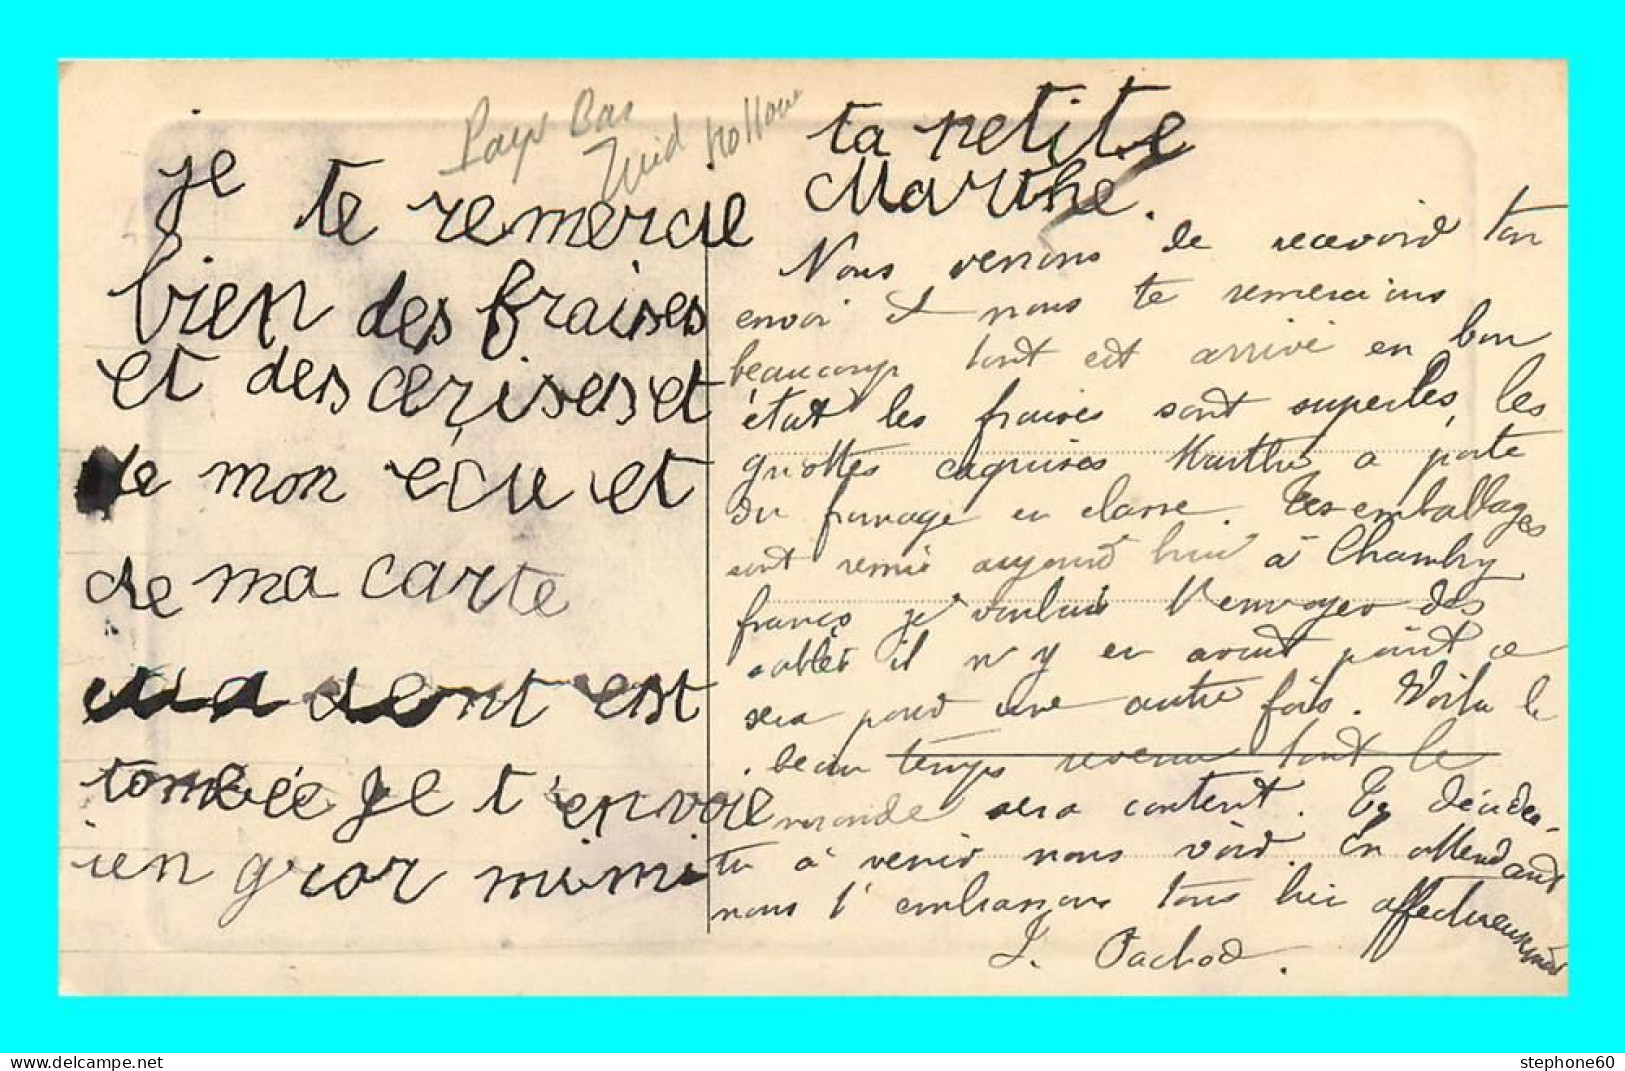 Pays Bas
Zuid Holland
je te remercie
bien des fraises
et des cerises et
de mon écu et
de ma carte
ma dent est
tombée je t'envoie
ien gros mimi
ta petite
Marthe.
Nous venons de recevoir ton
envoi et nous te remercions
beaucoup tout est arrivé en bon
état les fraises sont superbes, les
griottes exquises Marthe a porté
du fromage en classe. Tes emballages
sont remis aujourd'hui à Chambry
francs je voulais t'envoyer des
sablés il n'y en avait point ce
sera pour une autre fois. Voila le
beau temps revenu tout le
monde sera content. Te décides-
tu à venir nous voir. En attendant
nous t'embrassons tous bien affectueusement
J. Pachod.
stephone60